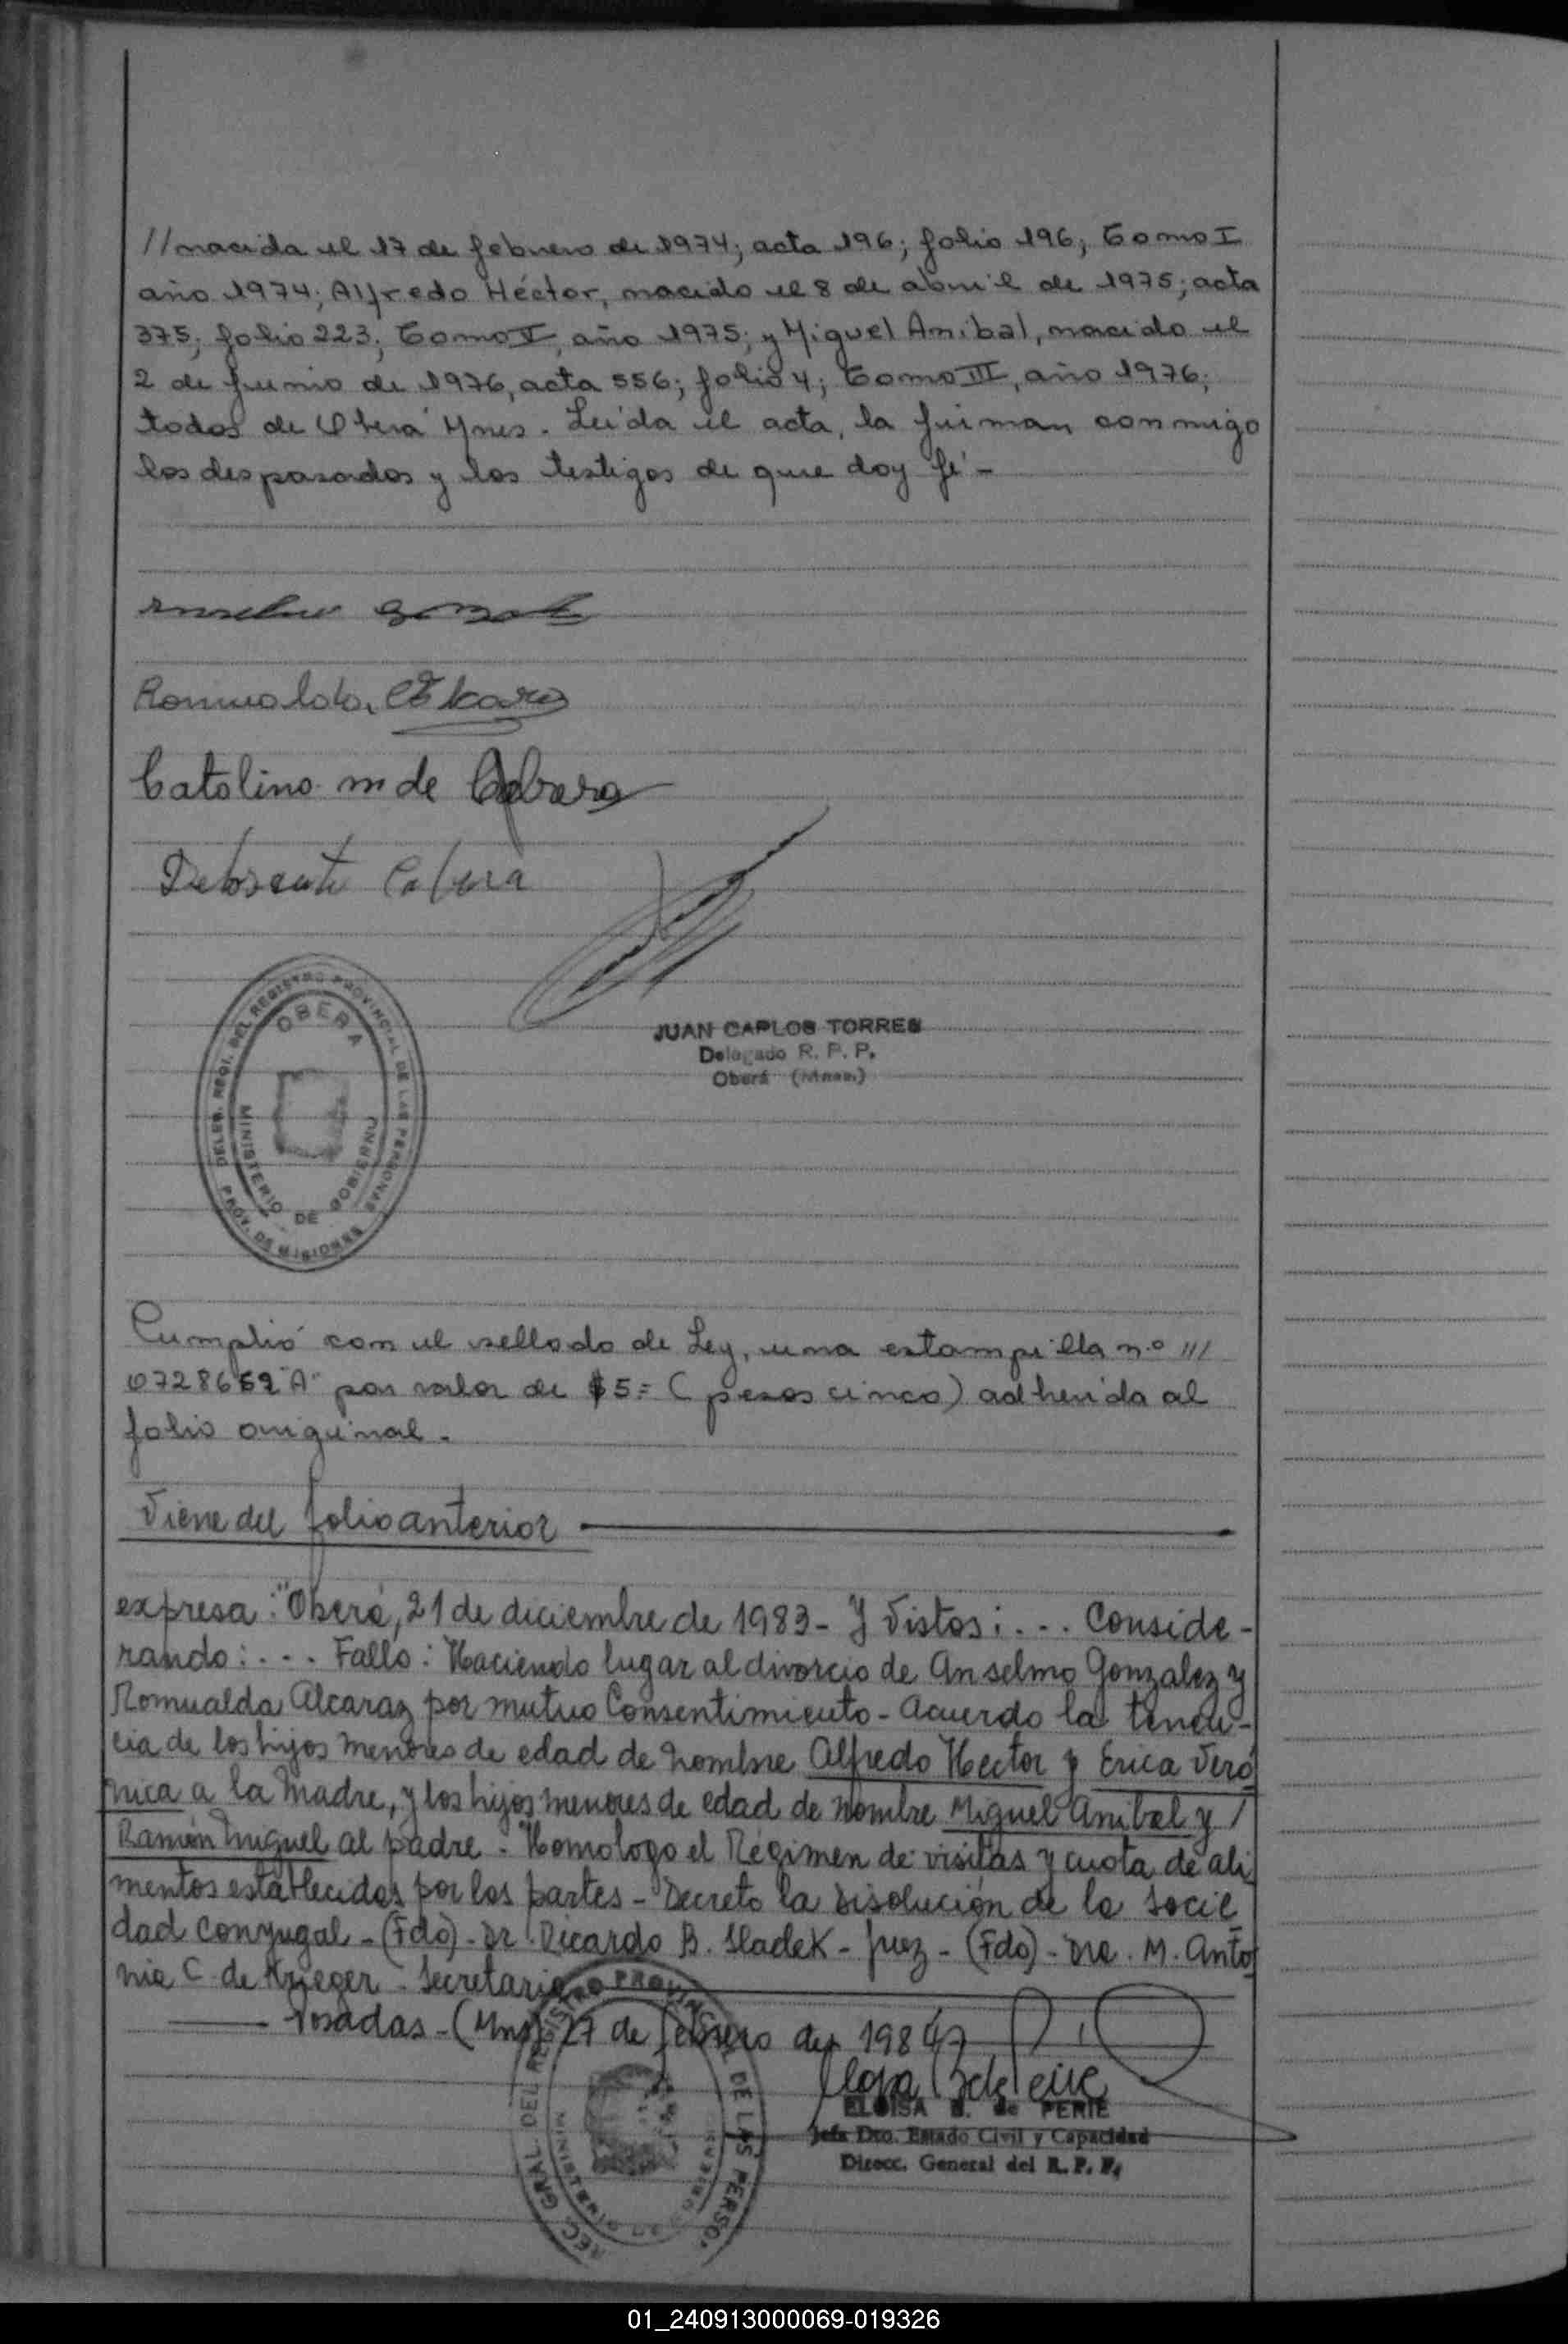 //nacida el 17 de febrero de 1974; acta 196; folio 196; Tomo I
año 1974; Alfredo Héctor, nacido el 8 de abril de 1975; acta
375; folio 223; Tomo II, año 1975; y Miguel Anibal, nacido el
2 de junio de 1976, acta 556; folio 4; Tomo III, año 1976;
todos de Oberá Mnes. Leída el acta, la firman conmigo
los desposados y los testigos de que doy fé -
Romualda
Catalina m de Cabrera
Cabrera
DELEG. REGI. DEL REGISTRO PROVINCIAL DE LAS PERSONAS
OBERA
MINISTERIO DE GOBIERNO
PROV. DE MISIONES
JUAN CARLOS TORRES
Delegado R. P. P.
Oberá (Mnes.)
Cumplió con el sellado de Ley, una estampilla n.º ///
0728652"A" por valor de $5.= (pesos cinco) adherida al
folio original.
Viene del folio anterior
expresa: "Oberá, 21 de diciembre de 1983 - Y Vistos: ... Conside-
rando: ... Fallo: Haciendo lugar al divorcio de Anselmo Gonzalez y
Romualda Alcaraz por mutuo Consentimiento - Acuerdo la tenen-
cia de los hijos menores de edad de nombre Alfredo Hector y Erica Veró
nica a la madre, y los hijos menores de edad de nombre Miguel Anibal y /
Ramón Miguel al padre - Homologo el Régimen de visitas y cuota de ali
mentos establecidos por las partes - Decreto la Disolución de la Socie
dad Conyugal - (Fdo) - Dr. Ricardo B. Sladek - Juez - (Fdo) - Dra. M. Anto
nia C. de Krieger - Secretaria
Posadas - (Mns) 27 de febrero de 1984
ELOISA B. de PERIE
Jefa Dto. Estado Civil y Capacidad
Direcc. General del R. P. P.
REC. GRAL. DEL REGISTRO PROVINCIAL DE LAS PERSO.
01_240913000069-019326